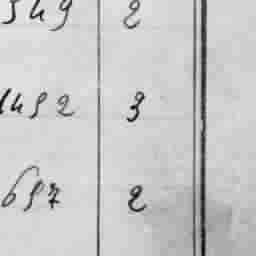 349 2
1492 3
697 2